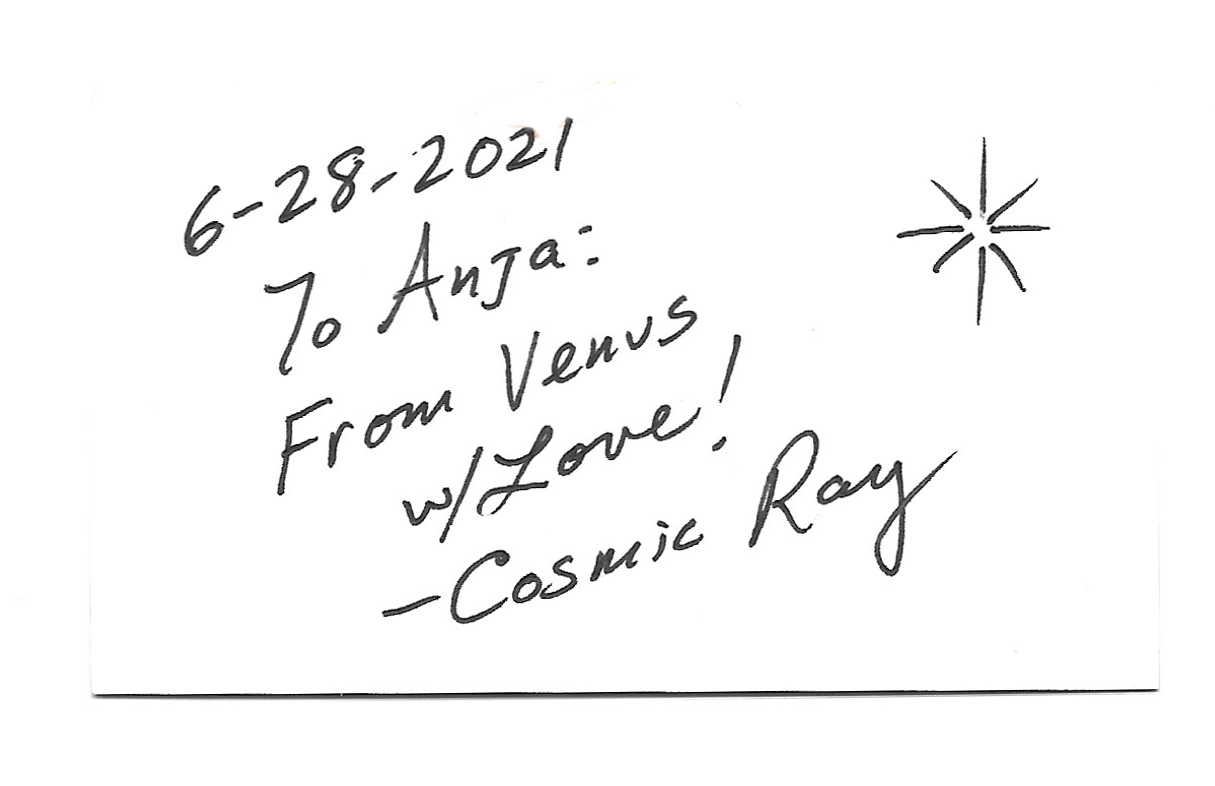 6-28-2021
To Anja:
From Venus
w/Love!
-Cosmic Ray